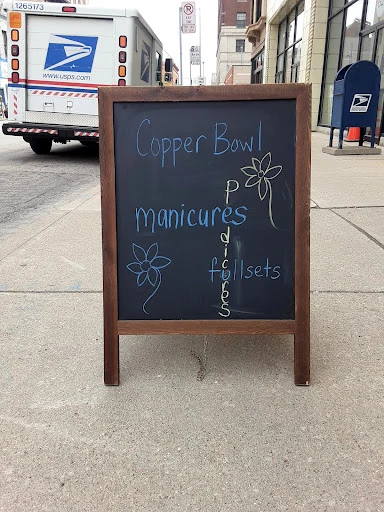 1265173
www.usps.com
Copper Bowl
manicures
pedicures
fullsets